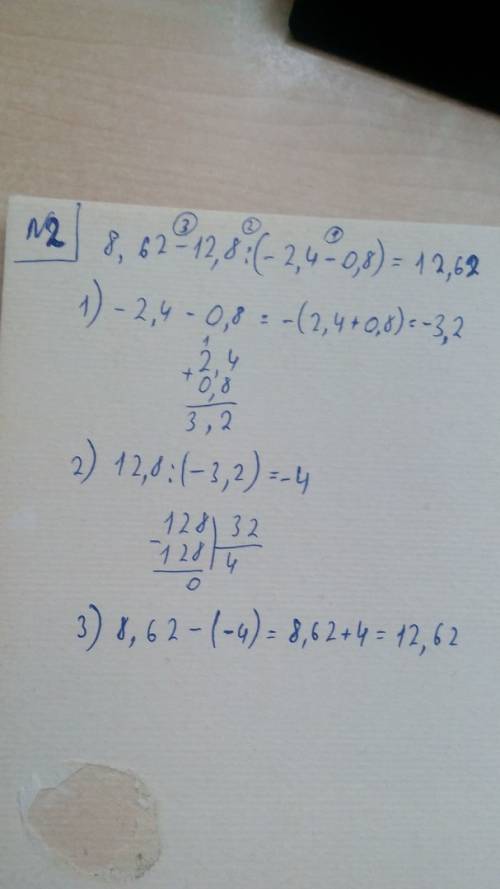 №2
③ ② ①
8,62-12,8:(-2,4-0,8)=12,62
1) -2,4-0,8=-(2,4+0,8)=-3,2
1
2,4
+
0,8
3,2
2) 12,8:(-3,2)=-4
-128|32
128|4
0
3) 8,62-(-4)=8,62+4=12,62